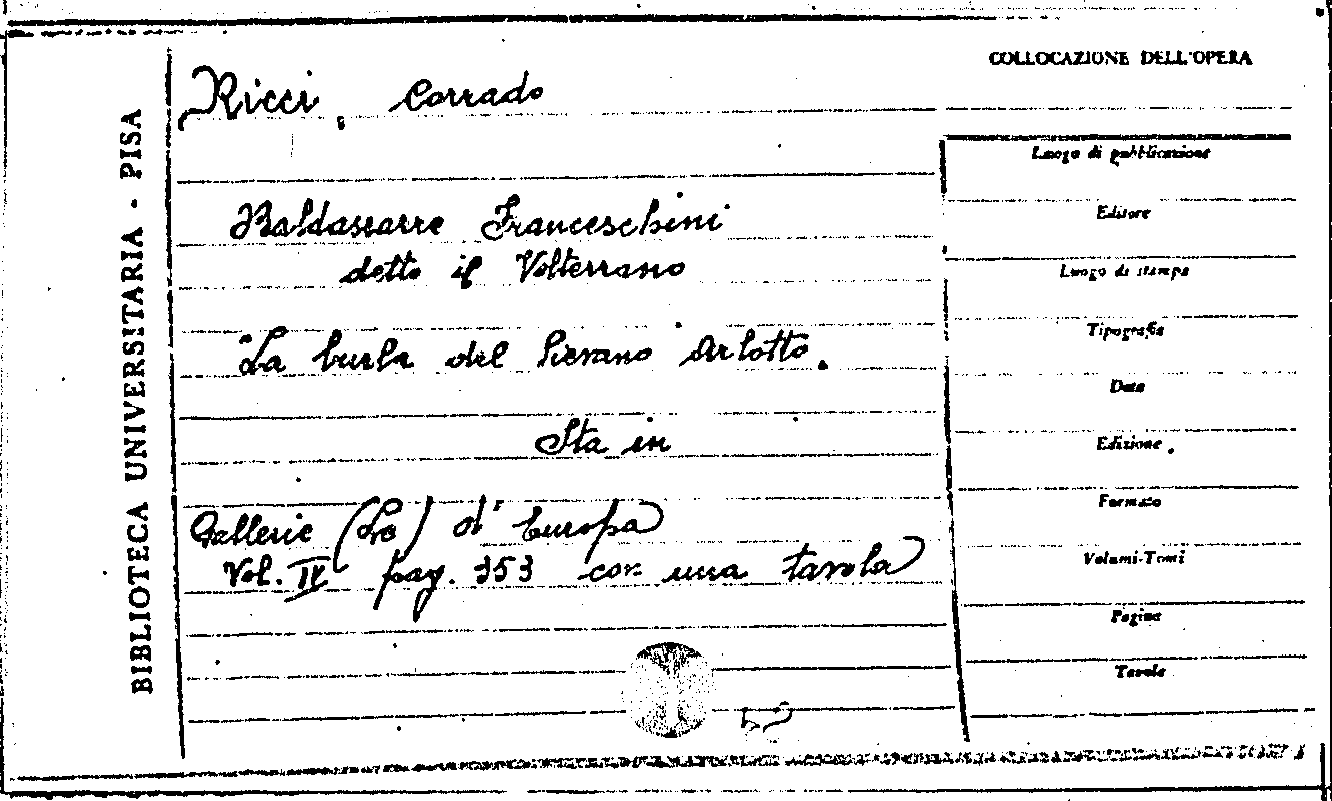 COLLOCAZIONE DELL'OPERA
BIBLIOTECA UNIVERSITARIA - PISA
Ricci, Corrado
Baldassarre Franceschini
detto il Volterrano
"La burla del Pievano Arlotto.
Sta in
Gallerie (Le) d'Europa
Vol. IV pag. 353 con una tavola
Luogo di pubblicazione
Editore
Luogo di stampa
Tipografia
Data
Edizione
Formato
Volumi-Tomi
Pagine
Tavole